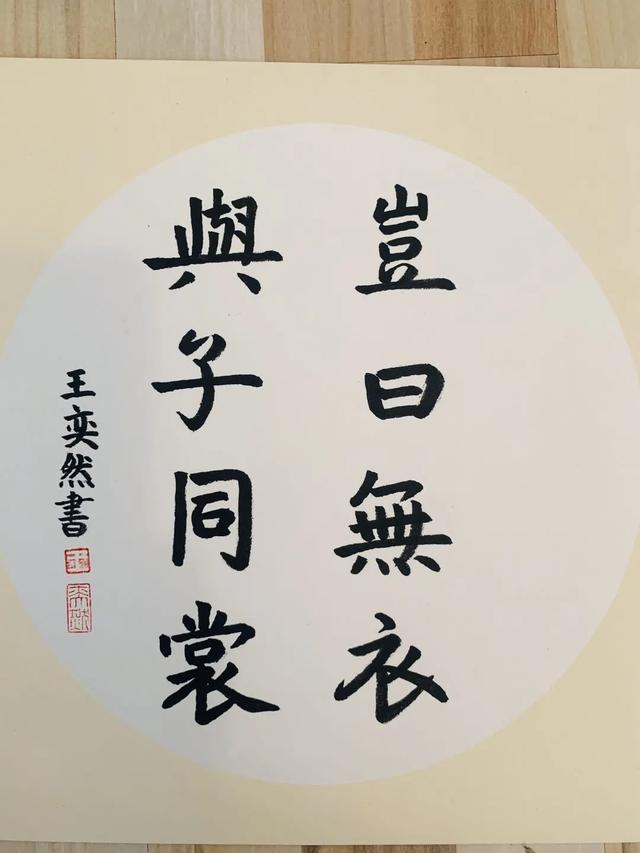 豈曰無衣
與子同裳
王奕然書
王
奕然